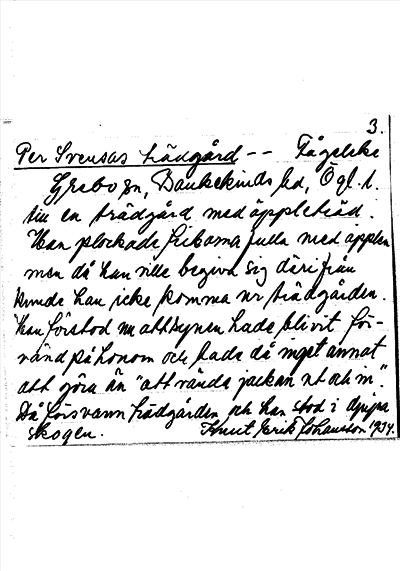 3.
Per Svensas trädgård -- Fågeleke
Grebo sn, Bankekinds hd, Ögl. t.
till en trädgård med äppleträd.
Han plockade fickorna fulla med äpplen
men då han ville begiva sig därifrån
kunde han icke komma ur trädgården.
Han förstod nu att synen hade blivit för-
vänd på honom och hade då inget annat
att göra än "att vända jackan ut och in".
Då försvann trädgården och han stod i djupa
skogen. Knut Erik Johansson 1934.